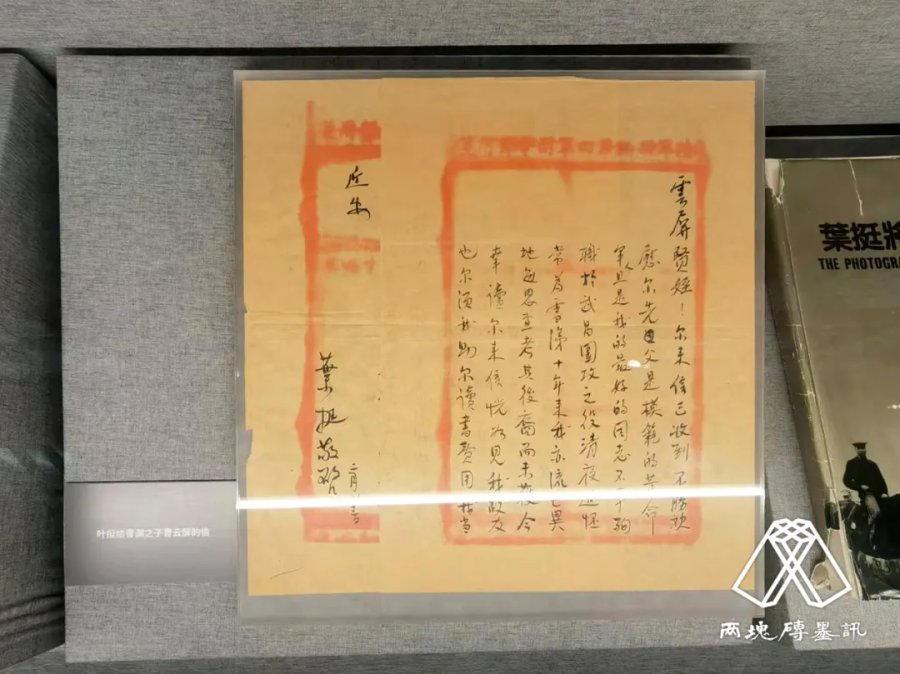 雲屏賢姪！尔来信已收到不勝欣
慰尔先父是模範的革命
軍人且是我的最好的同志不幸殉
職於武昌圍攻之役清夜追怀
常为雪涕十年来我亦流亡異
地每思查考其後裔而未获今
幸讀尔来信恍如見我故友
也尔须我助尔读書費用我当
近安
葉挺敬啓
叶挺给曹渊之子曹云屏的信
葉挺將
THE PHOTOGRA
两塊磚墨訊